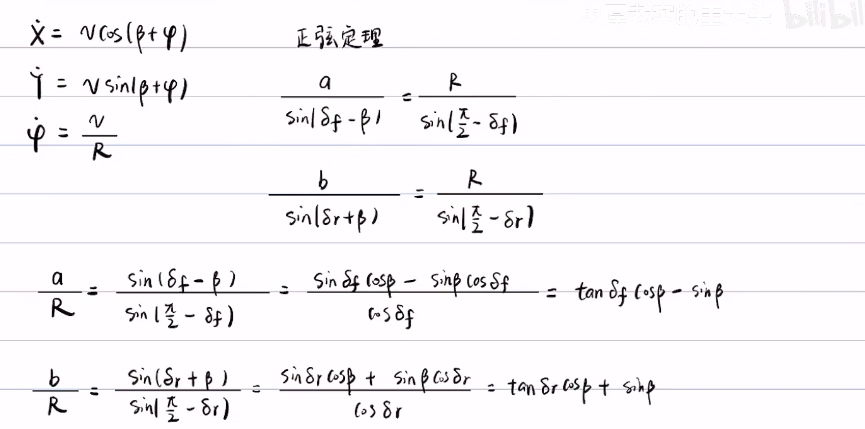 Ẋ = v cos(β+φ)
正弦定理
Ẏ = v sin(β+φ)
a / sin(δf - β) = R / sin(π/2 - δf)
φ̇ = v / R
b / sin(δr + β) = R / sin(π/2 - δr)
a / R = sin(δf - β) / sin(π/2 - δf) = (sin δf cosβ - sinβ cos δf) / cos δf = tan δf cosβ - sinβ
b / R = sin(δr + β) / sin(π/2 - δr) = (sin δr cosβ + sinβ cos δr) / cos δr = tan δr cosβ + sinβ
bilibili